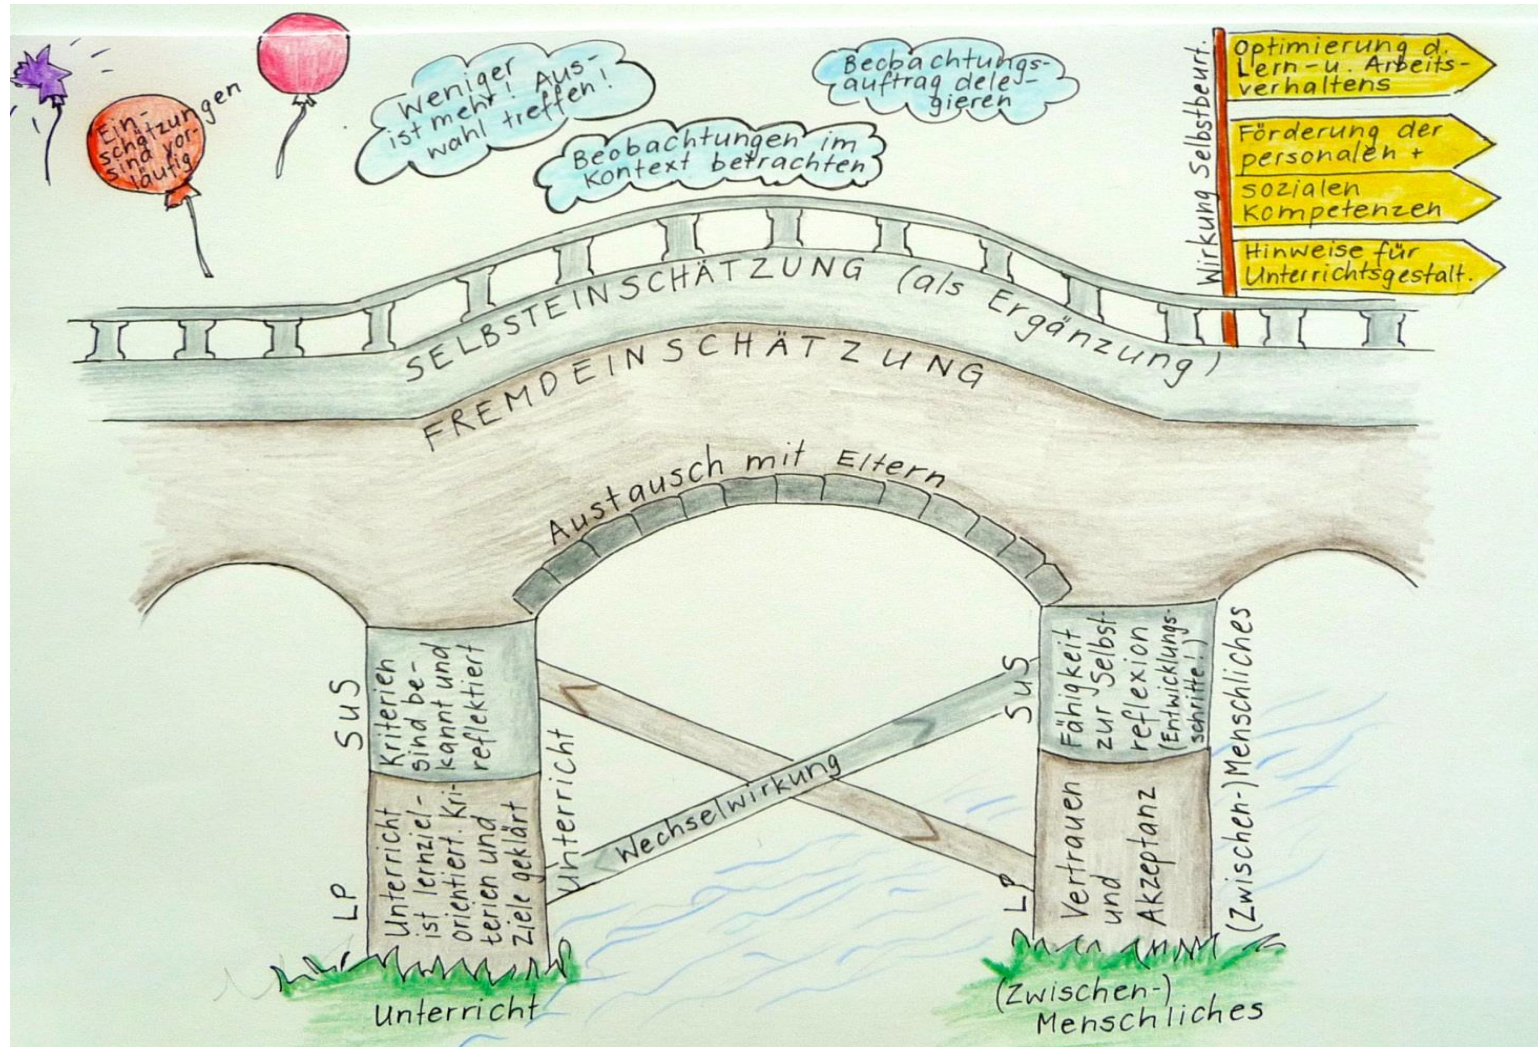 Ein-
schätzungen
sind vor-
läufig
Weniger
ist mehr! Aus-
wahl treffen!
Beobachtungen im
Kontext betrachten
Beobachtungs-
auftrag dele-
gieren
Wirkung Selbstbeurt.
Optimierung d.
Lern- u. Arbeits-
verhaltens
Förderung der
personalen +
sozialen
Kompetenzen
Hinweise für
Unterrichtsgestalt.
SELBSTEINSCHÄTZUNG (als Ergänzung)
FREMDEINSCHÄTZUNG
Austausch mit Eltern
SuS
Kriterien
sind be-
kannt und
reflektiert
LP
Unterricht
ist lernziel-
orientiert. Kri-
terien und
Ziele geklärt
Unterricht
Wechselwirkung
SuS
Fähigkeit
zur Selbst-
reflexion
(Entwicklungs-
schritte!)
LP
Vertrauen
und
Akzeptanz
(Zwischen-)Menschliches
Unterricht
(Zwischen-)
Menschliches